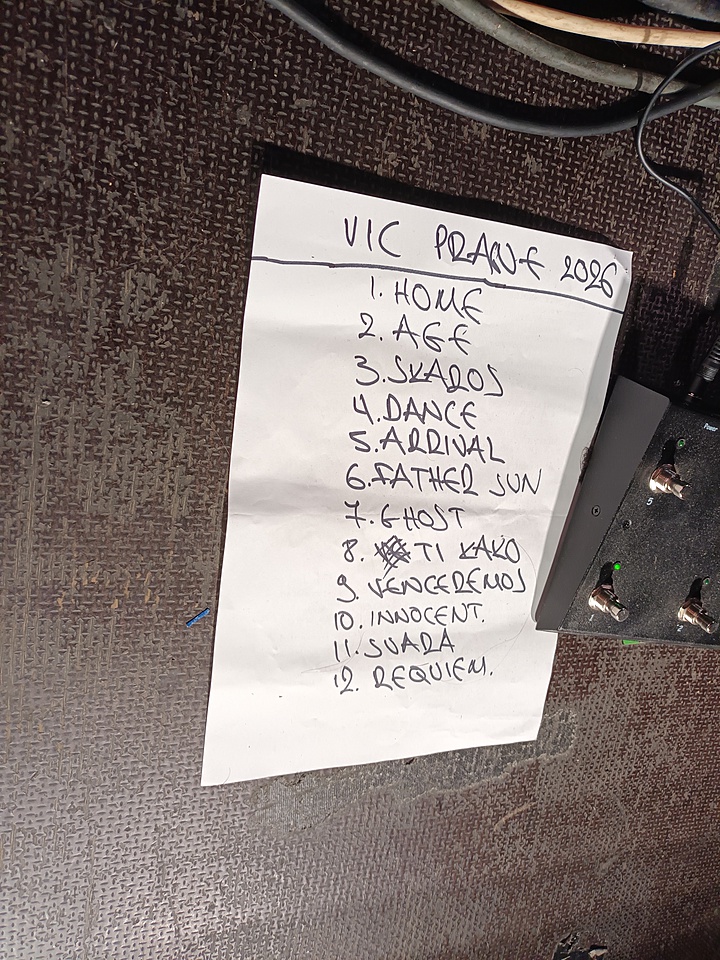 VIC PRANE 2026
1. HOME
2. AGE
3. SKAROS
4. DANCE
5. ARRIVAL
6. FATHER SUN
7. GHOST
8. TI KAKO
9. VENCEREMOS
10. INNOCENT.
11. SUARA
12. REQUIEM.
Power
5
1
2